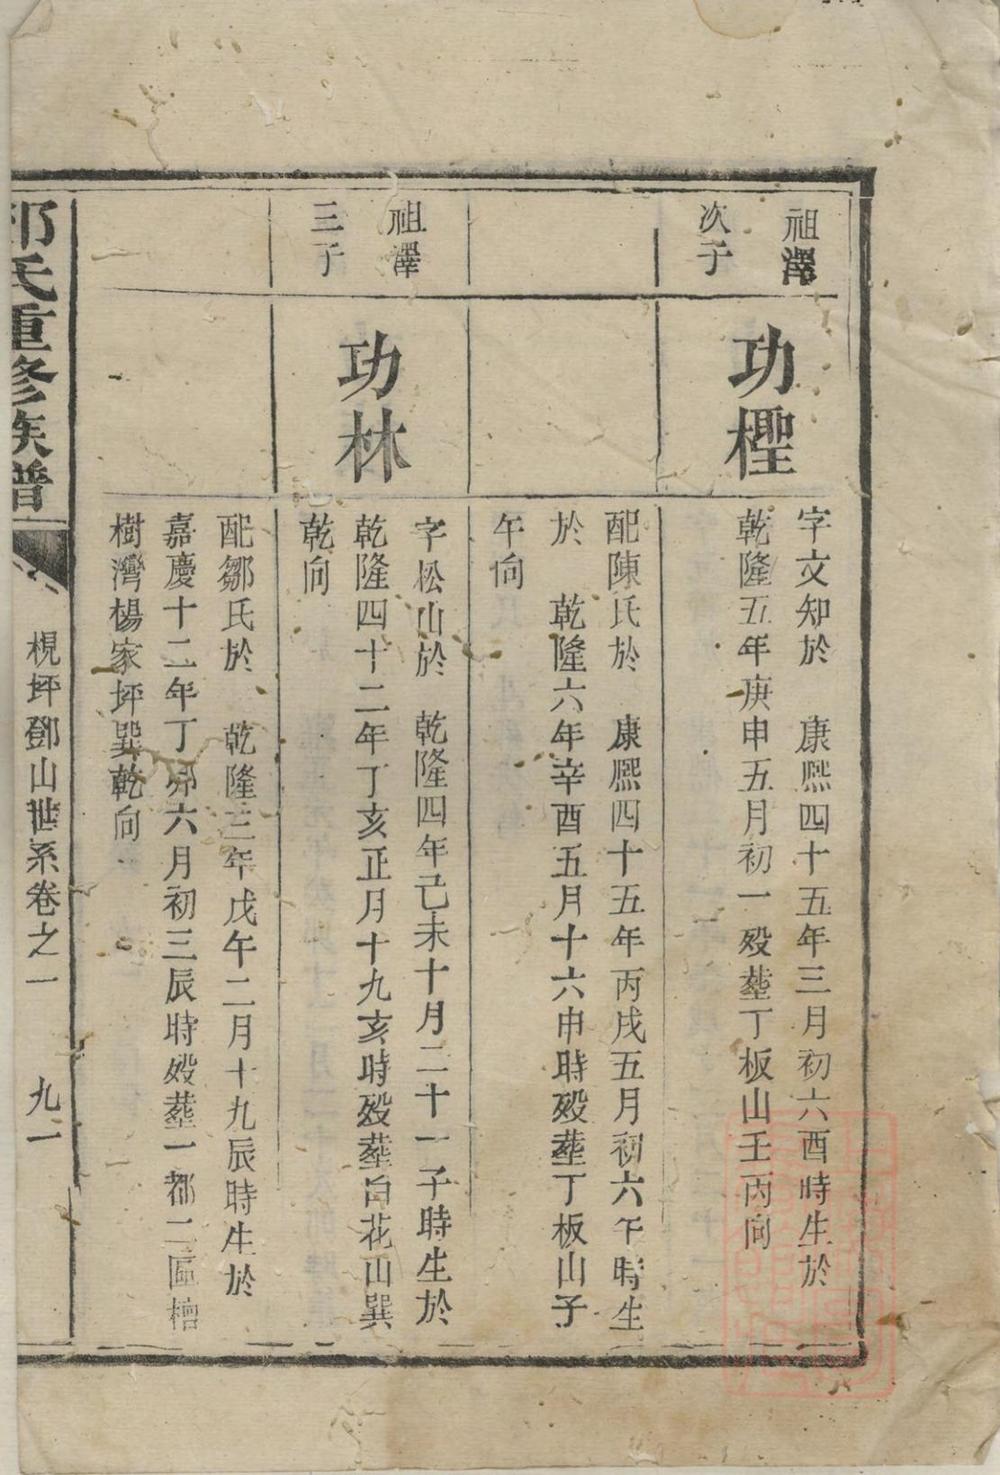 祖澤
次子
功檉
字文知於　康熙四十五年三月初六酉時生於
乾隆五年庚申五月初一歿塟丁板山壬丙向
配陳氏於　康熙四十五年丙戌五月初六午時生
於　乾隆六年辛酉五月十六申時歿塟丁板山子
午向
祖澤
三子
功林
字松山於　乾隆四年己未十月二十一子時生於
乾隆四十二年丁亥正月十九亥時歿塟白花山巽
乾向
配鄒氏於　乾隆三年戊午二月十九辰時生於
嘉慶十二年丁夘六月初三辰時歿塟一都二區檜
樹灣楊家坪巽乾向
氏重修族譜
梘坪鄧山世系卷之一
九一